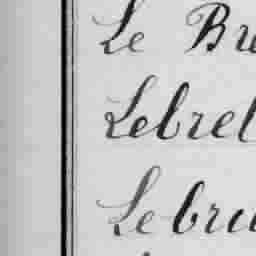 Le Bre
Lebrel
Lebru